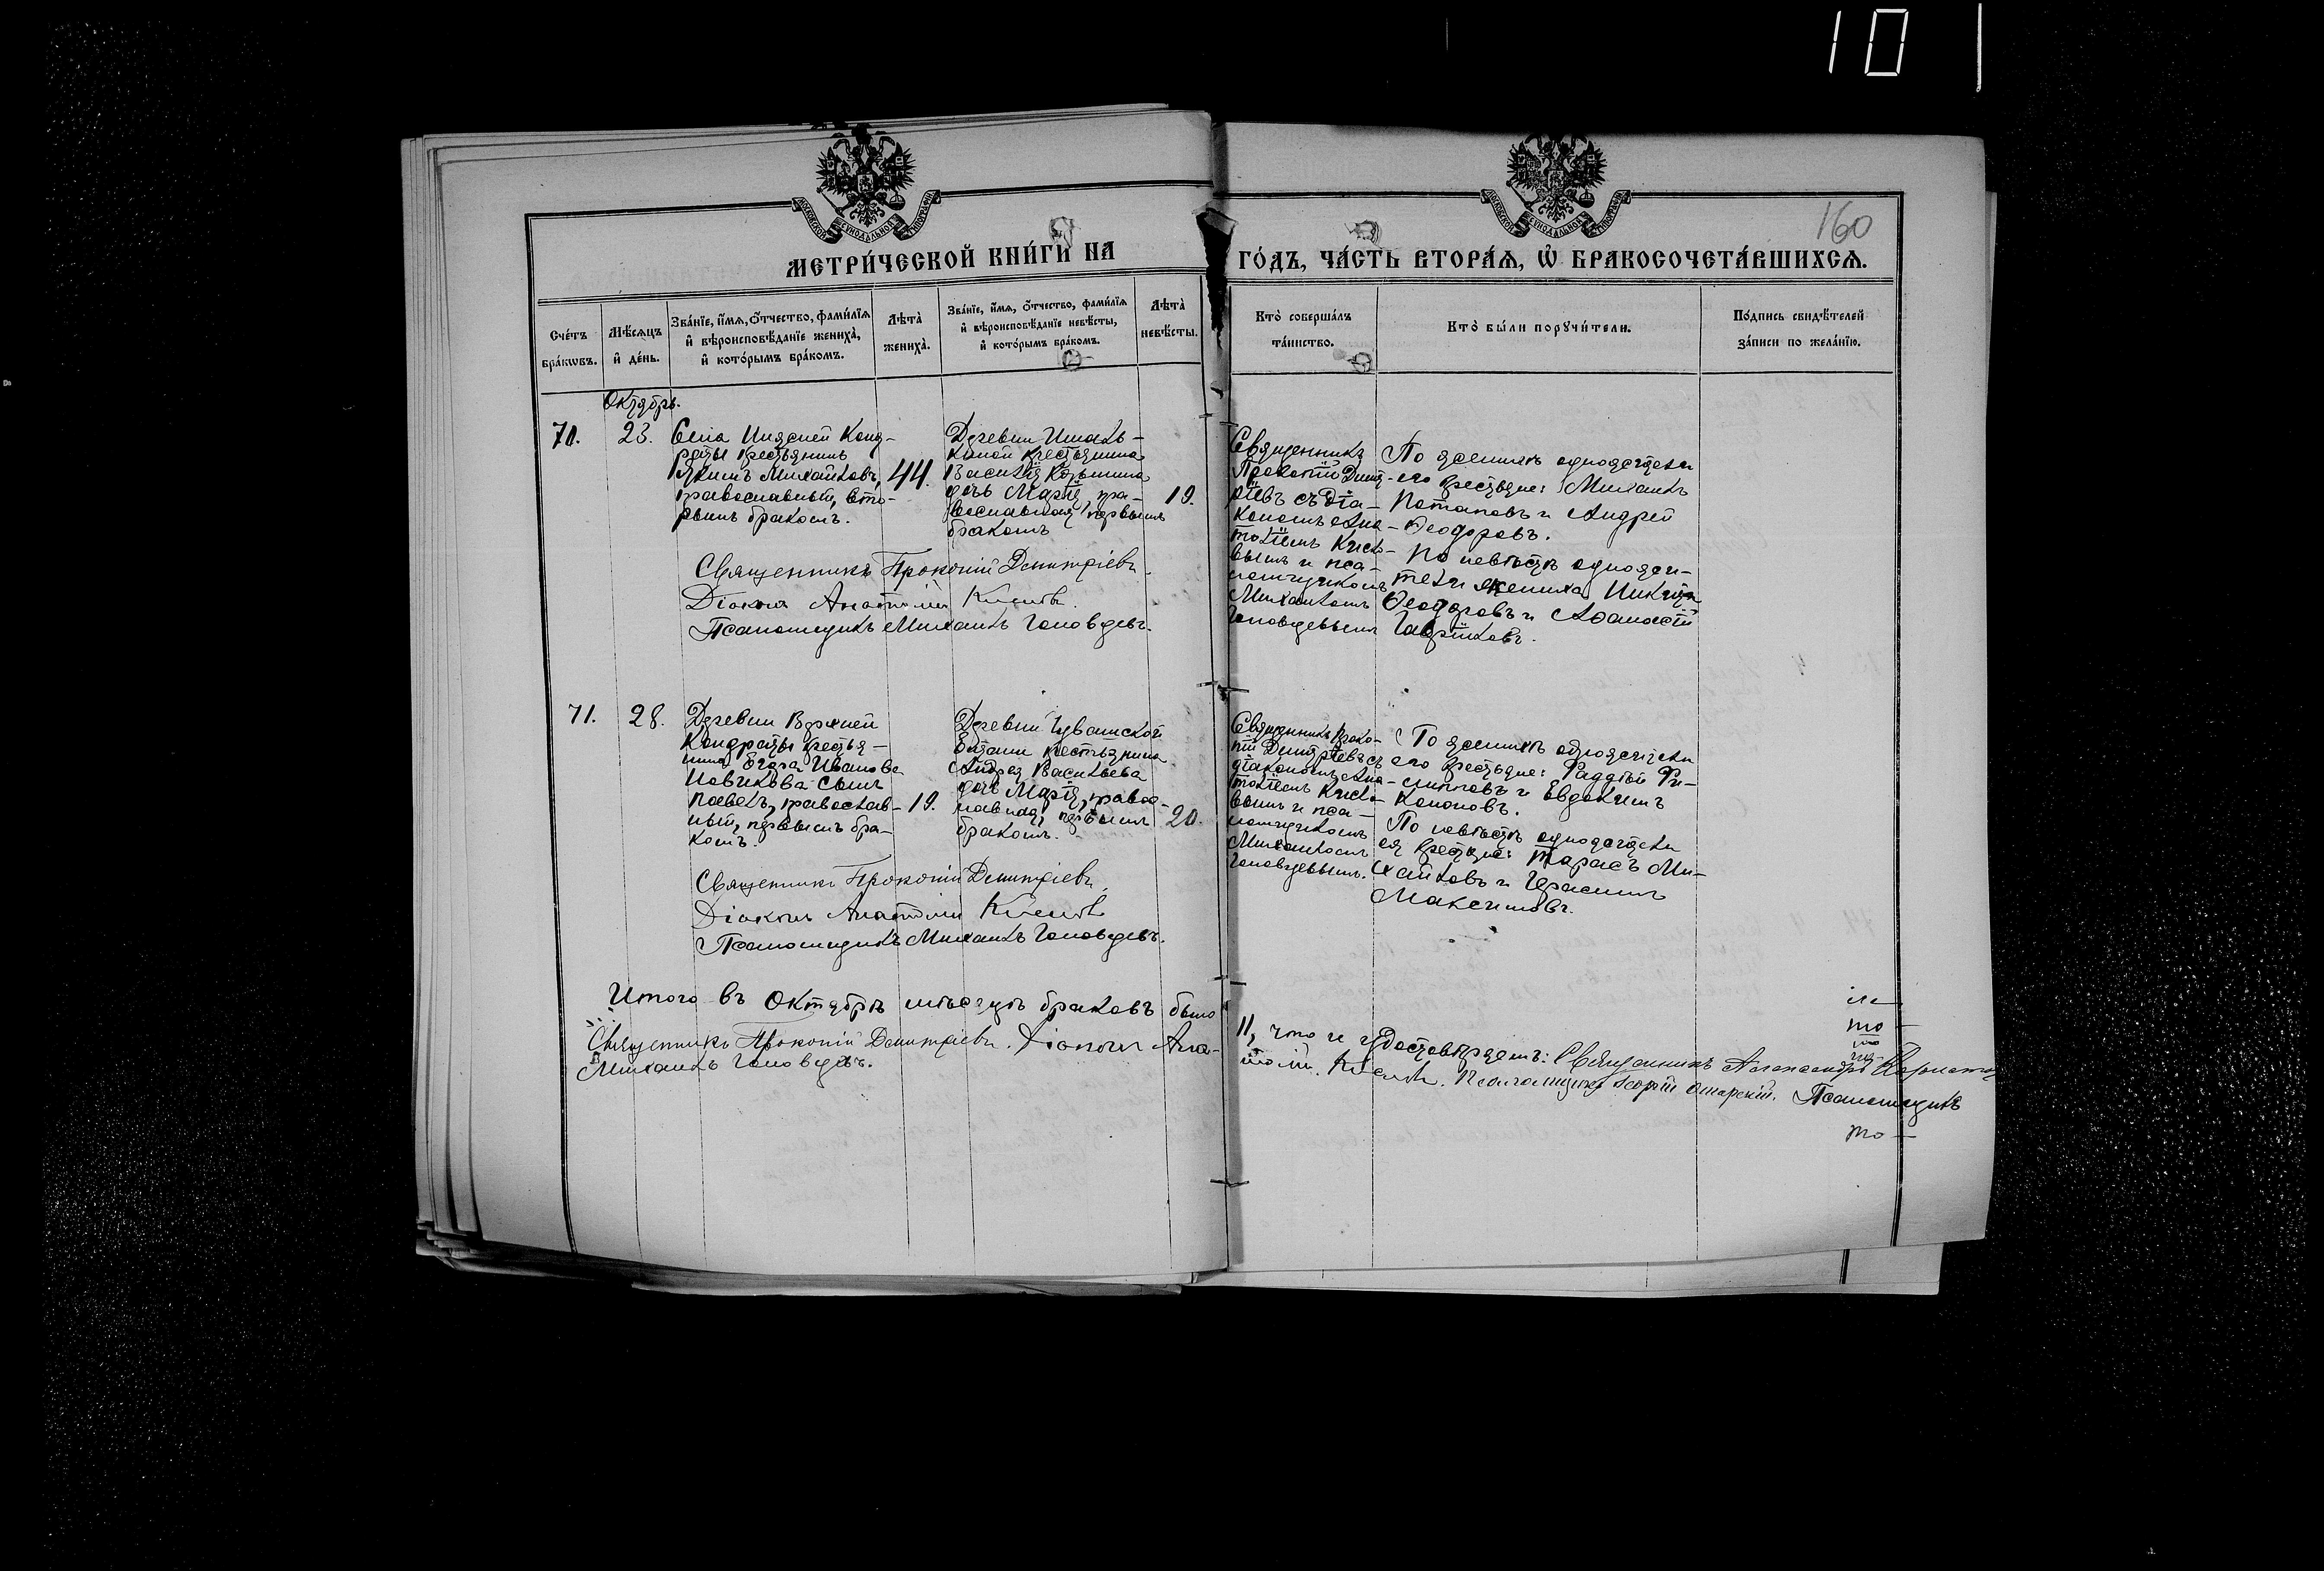 10
160
МОСКОВСКОЙ СУНОДАЛЬНОЙ ТИПОГРАФІИ
МОСКОВСКОЙ СУНОДАЛЬНОЙ ТИПОГРАФІИ
МЕТРИ́ЧЕСКОЙ КНИ́ГИ НА ГО́ДЪ, ЧА́СТЬ ВТОРА́Я, Ѡ БРАКОСОЧЕТА́ВШИХСЯ.
Сче́тъ бра́кѡвъ.
Мѣ́сяцъ и де́нь.
Зва́нїе, и́мя, ѻ́тчество, фами́лїя и вѣроисповѣ́данїе жениха̀, и кото́рымъ бра́комъ.
Лѣта̀ жениха̀.
Зва́нїе, и́мя, ѻ́тчество, фами́лїя и вѣроисповѣ́данїе невѣ́сты, и кото́рымъ бра́комъ.
Лѣта̀ невѣ́сты.
Кто̀ соверша́лъ та́инство.
Кто̀ бы́ли порꙋчи́тели.
По́дпись свидѣ́телей за́писи по жела́нїю.
Октябрь.
70.
23.
Села Нижней Конд-
раты крестьянинъ
Якимъ Михайловъ,
православный, вто-
рымъ бракомъ.
44.
Деревни Ишаль-
киной крестьянина
Василія Козьмина
дочь Марія, пра-
вославная, первымъ
бракомъ
19.
Священникъ
Прокопій Димит-
ріевъ съ діа-
кономъ Ана-
толіемъ Кисе-
вымъ и пса-
ломщикомъ
Михаиломъ
Головцевымъ
По женихѣ односельцы
его крестьяне: Михаилъ
Потаповъ и Андрей
Ѳеодоровъ.
По невѣстѣ одножи-
тели жениха Никита
Ѳеодоровъ и Аѳанасій
Гавриловъ.
Священникъ Прокопій Димитріевъ.
Діаконъ Анатолій
Псаломщикъ Михаилъ Головцевъ.
71.
28.
Деревни Верхней
Кондраты крестья-
нина Егора Иванова
Новикова сынъ
Павелъ, православ-
ный, первымъ бра-
комъ.
19.
Деревни Чувашской
крестьянина
Андрея Васильева
дочь Марія, право-
славная, первымъ
бракомъ.
20.
Священникъ Проко-
пій Димитріевъ съ
діакономъ Ана-
толіемъ Кисе-
вымъ и пса-
ломщикомъ
Михаиломъ
Головцевымъ.
По женихѣ односельцы
его крестьяне: Фаддѣй Фи-
липповъ и Евдокимъ
Кононовъ.
По невѣстѣ односельцы
ея крестьяне: Тарасъ Ми-
хайловъ и Герасимъ
Максимовъ.
Священникъ Прокопій Димитріевъ.
Діаконъ Анатолій
Псаломщикъ Михаилъ Головцевъ.
Итого въ Октябрѣ мѣсяцѣ браковъ было 11, что и удостовѣряемъ: Священникъ Александръ
Священникъ Прокопій Димитріевъ. Діаконъ Ана-
толій. Псаломщикъ Псаломщикъ
Михаилъ Головцевъ.